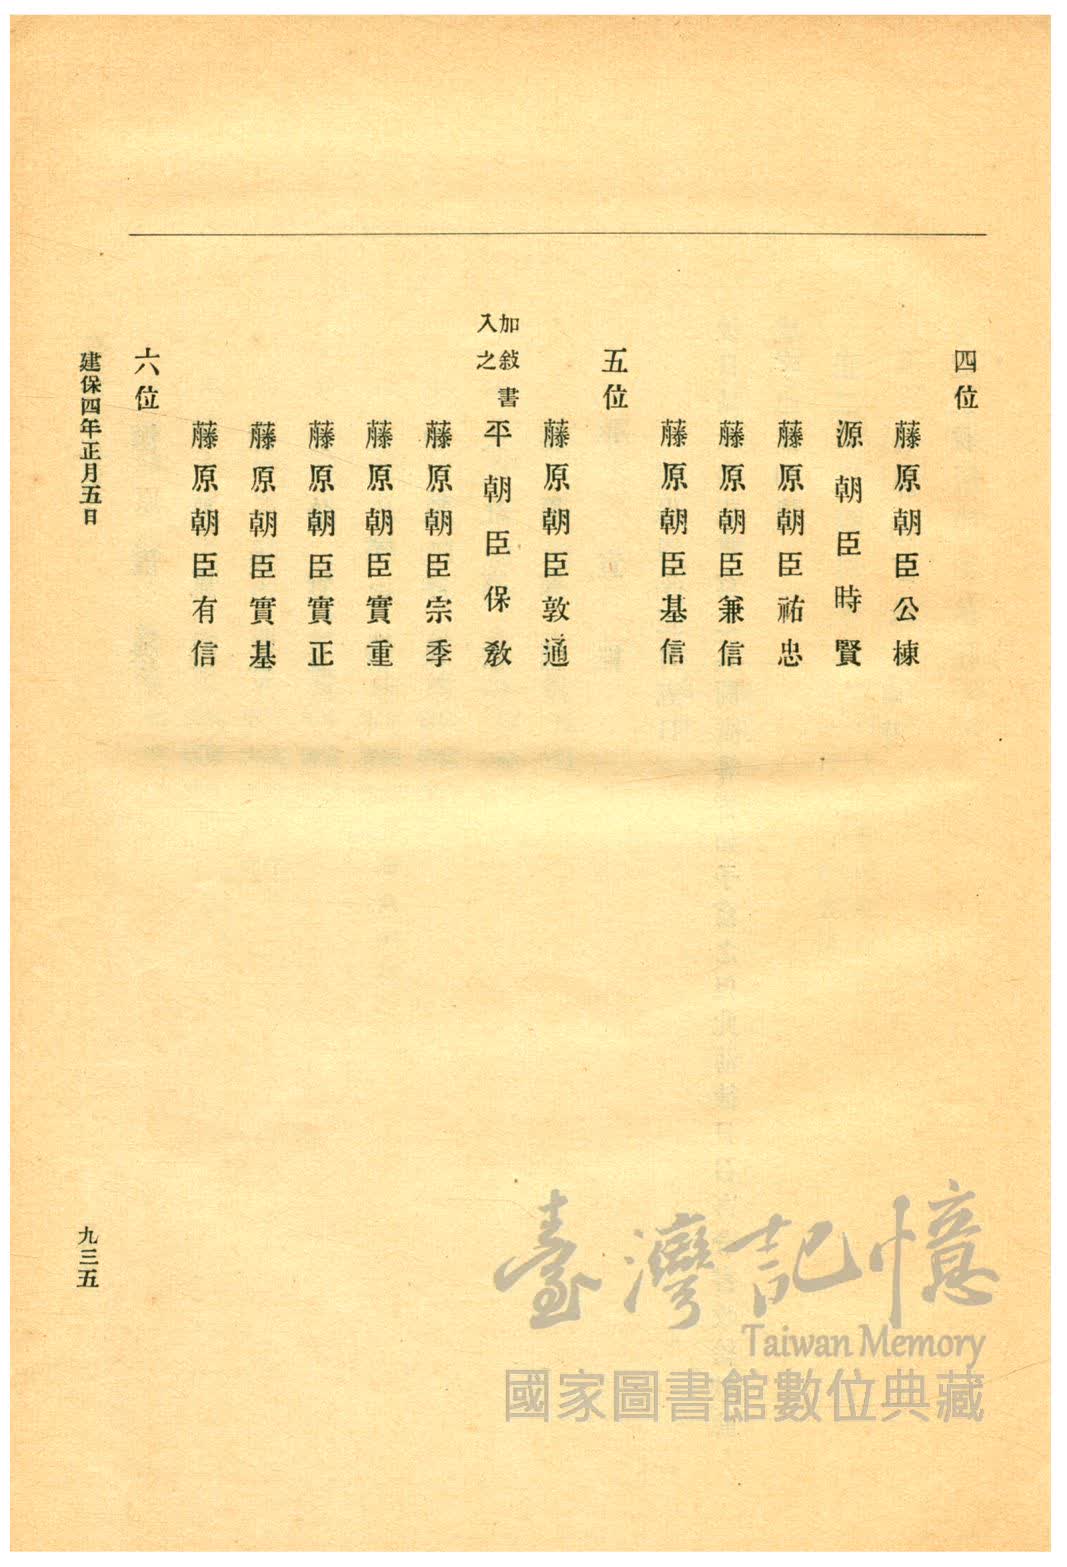 四位
藤原朝臣公棟
源朝臣時賢
藤原朝臣祐忠
藤原朝臣兼信
藤原朝臣基信
五位
藤原朝臣敦通
加敍書
入之
平朝臣保敎
藤原朝臣宗季
藤原朝臣實重
藤原朝臣實正
藤原朝臣實基
藤原朝臣有信
六位
建保四年正月五日
九三五
臺灣記憶
Taiwan Memory
國家圖書館數位典藏